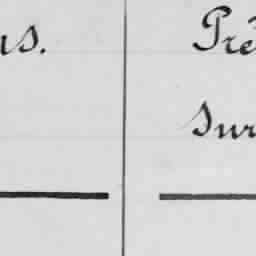 us.
Pré
Sur